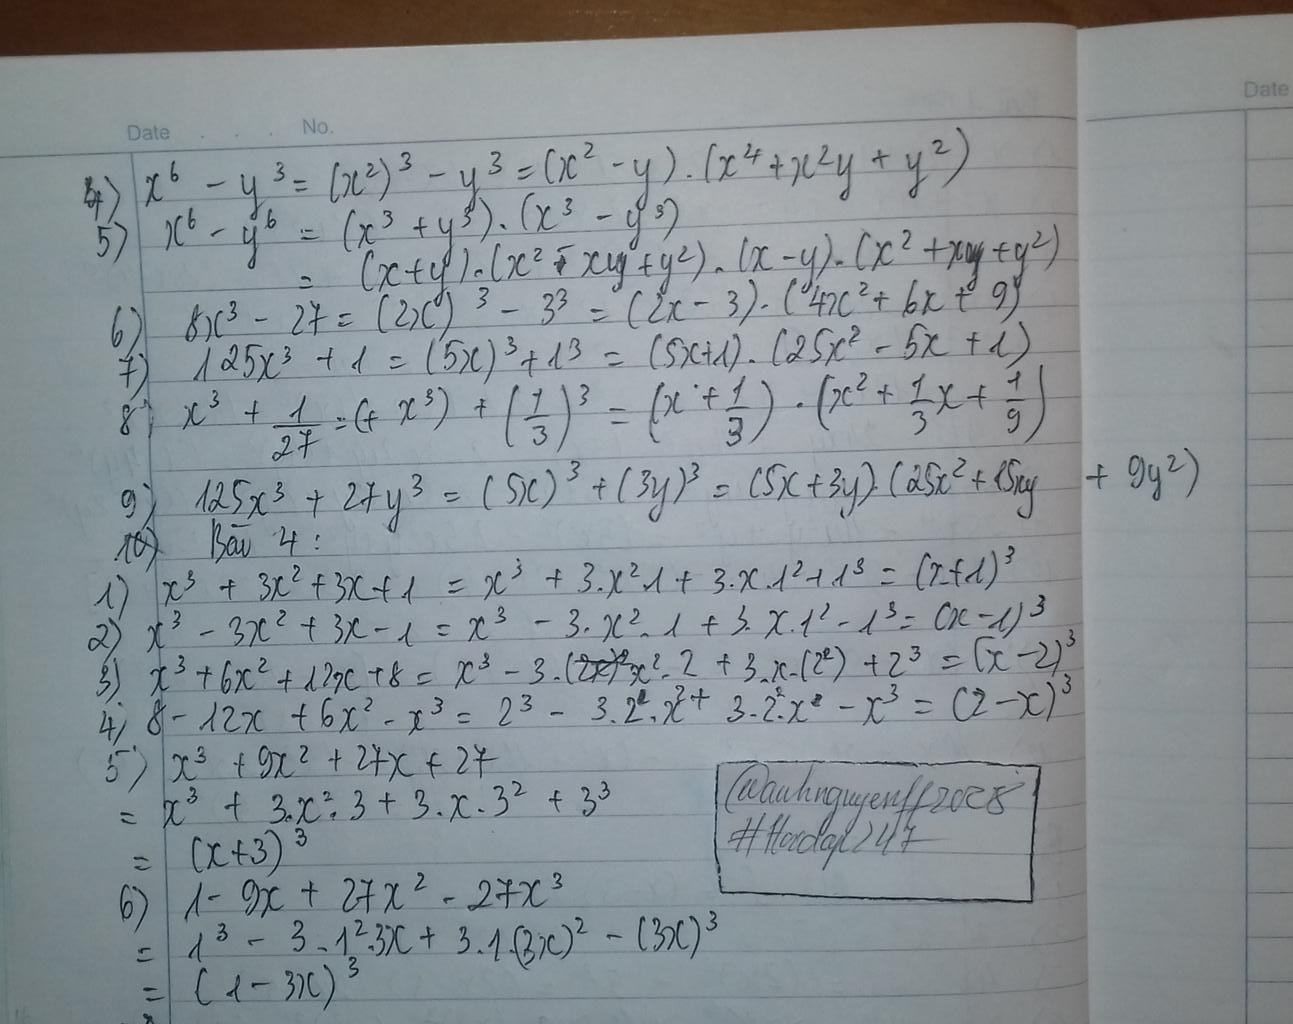 Date . . . No.
Date
4) x⁶ - y³ = (x²)³ - y³ = (x² - y).(x⁴ + x²y + y²)
5) x⁶ - y⁶ = (x³ + y³).(x³ - y³)
= (x+y).(x² - xy + y²).(x - y).(x² + xy + y²)
6) 8x³ - 27 = (2x)³ - 3³ = (2x - 3).(4x² + 6x + 9)
7) 125x³ + 1 = (5x)³ + 1³ = (5x+1).(25x² - 5x + 1)
8) x³ + 1/27 = (x³) + (1/3)³ = (x + 1/3).(x² + 1/3x + 1/9)
9) 125x³ + 27y³ = (5x)³ + (3y)³ = (5x + 3y).(25x² + 15xy + 9y²)
10) Bài 4 :
1) x³ + 3x² + 3x + 1 = x³ + 3.x².1 + 3.x.1² + 1³ = (x+1)³
2) x³ - 3x² + 3x - 1 = x³ - 3.x².1 + 3.x.1² - 1³ = (x - 1)³
3) x³ + 6x² + 12x + 8 = x³ - 3.x².2 + 3.x.(2²) + 2³ = (x - 2)³
4) 8 - 12x + 6x² - x³ = 2³ - 3.2².x + 3.2.x² - x³ = (2 - x)³
5) x³ + 9x² + 27x + 27
= x³ + 3.x².3 + 3.x.3² + 3³
= (x+3)³
@anhnguyenff2028
#Hoidap247
6) 1 - 9x + 27x² - 27x³
= 1³ - 3.1².3x + 3.1.(3x)² - (3x)³
= (1 - 3x)³